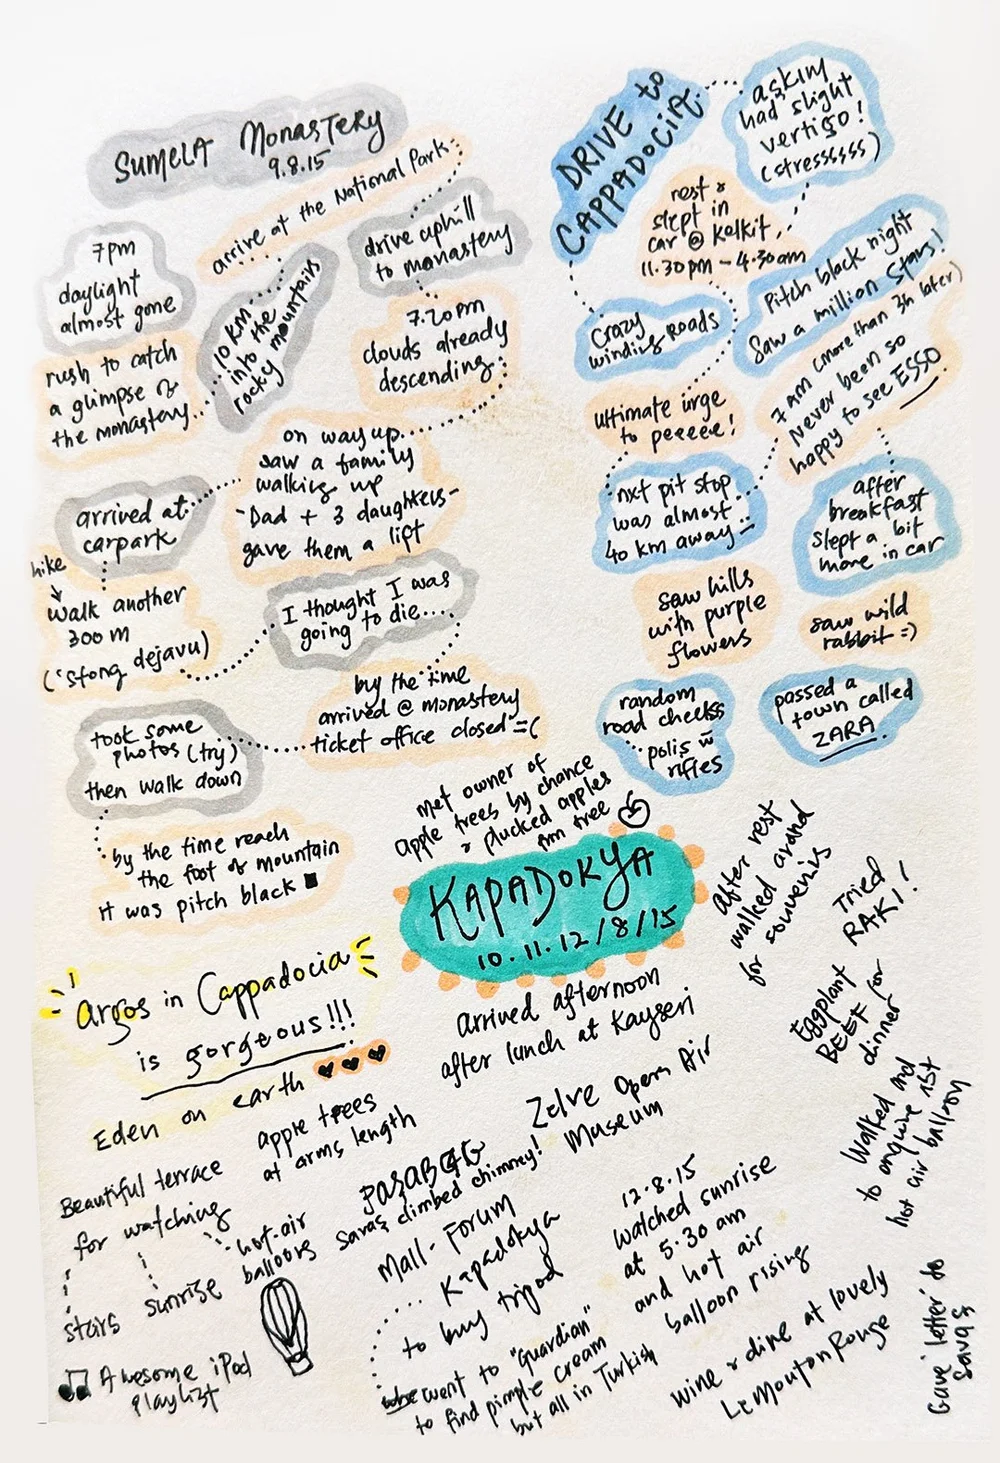 SUMELA MONASTERY
9.8.15
arrive at the National Park
7pm
daylight
almost gone
10 KM
into the
rocky mountains
drive uphill
to monastery
rush to catch
a glimpse of
the monastery...
7.20pm
clouds already
descending
on way up
saw a family
walking up
-Dad + 3 daughters-
gave them a lift
arrived at
carpark
hike
walk another
300 m
('Stong dejavu)
I thought I was
going to die...
by the time
arrived @ monastery
ticket office closed =(
took some
photos (try)
then walk down
by the time reach
the foot of mountain
it was pitch black
DRIVE to
CAPPADOCIA
askim
had slight
vertigo!
(stressssss)
rest &
slept in
car @ kelkit
11.30pm - 4.30am
crazy
winding roads
Pitch black night
Saw a million stars!
ultimate urge
to peeeee!
7am (more than 3h later)
Never been so
happy to see ESSO
nxt pit stop
was almost
40 km away
after
breakfast
slept a bit
more in car
saw hills
with purple
flowers
saw wild
rabbit =)
random
road checks
polis w
rifles
passed a
town called
ZARA
met owner of
apple trees by chance
& plucked apples
frm tree
KAPADOKYA
10.11.12/8/15
after rest
walked around
for souvenirs
Tried
RAKI!
Eggplant
BEEF for
dinner
arrived afternoon
after lunch at Kayseri
Argos in Cappadocia
is gorgeous!!!
Eden on earth
apple trees
at arms length
Beautiful terrace
for watching
stars
sunrise
hot-air
balloons
Awesome iPod
playlist
Zelve Open Air
Museum
PASABAG
Savas climbed chimney!
Mall - Forum
Kapadokya
to buy tripod
went to "Guardian"
to find pimple cream
but all in Turkish
12.8.15
watched sunrise
at 5.30 am
and hot air
balloon rising
Walked and
to enquire 1st
hot air balloon
wine & dine at lovely
Le Mouton Rouge
Gave letter to
Savas